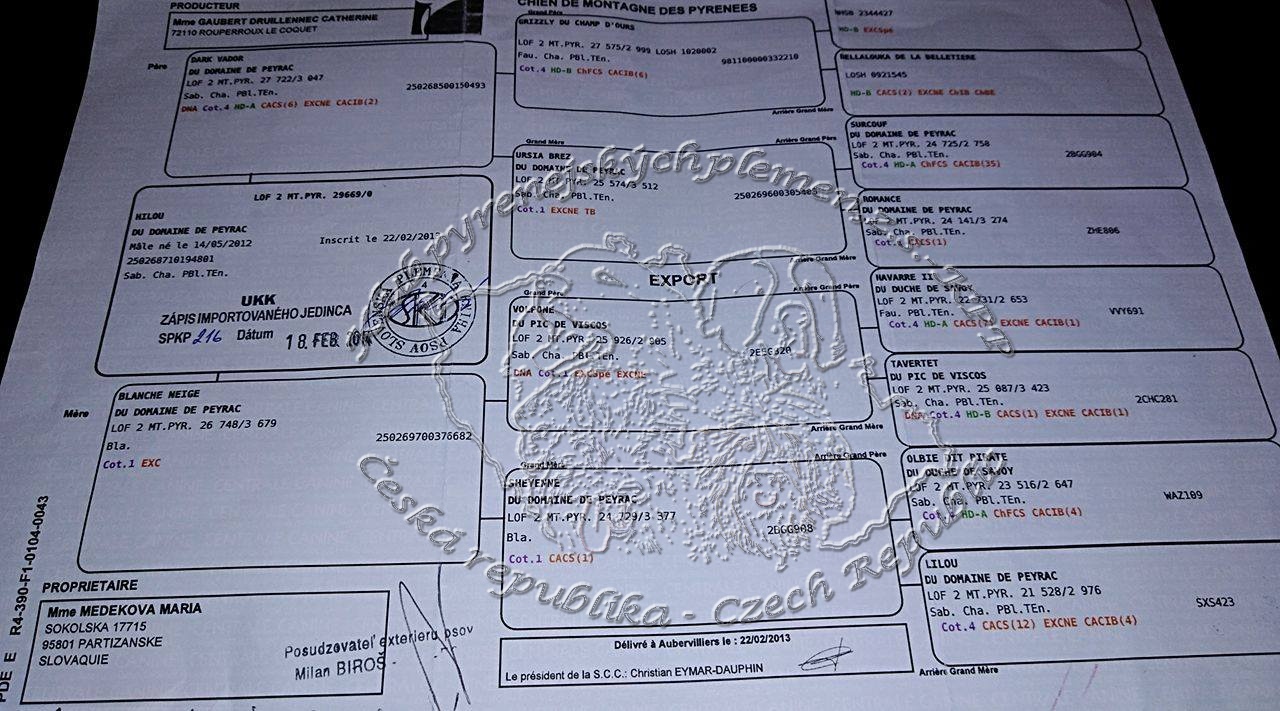 PRODUCTEUR
Mme GAUBERT DRUILLENNEC CATHERINE
72110 ROUPERROUX LE COQUET
CHIEN DE MONTAGNE DES PYRENEES
Père
DARK VADOR
DU DOMAINE DE PEYRAC
LOF 2 MT.PYR. 27 722/3 047
250268500150493
Sab. Cha. PBl.TEn.
DNA Cot.4 HD-A CACS(6) EXCNE CACIB(2)
LOF 2 MT.PYR. 29669/0
HILOU
DU DOMAINE DE PEYRAC
Mâle né le 14/05/2012
Inscrit le 22/02/2013
250268710194801
Sab. Cha. PBl.TEn.
UKK
ZÁPIS IMPORTOVANÉHO JEDINCA
SPKP 216 Dátum 18. FEB.
Mère
BLANCHE NEIGE
DU DOMAINE DE PEYRAC
LOF 2 MT.PYR. 26 748/3 679
250269700376682
Bla.
Cot.1 EXC
PROPRIETAIRE
Mme MEDEKOVA MARIA
SOKOLSKA 17715
95801 PARTIZANSKE
SLOVAQUIE
Posudzovateľ exterieru psov
Milan BIROŠ
R4-390-F1-0104-0043
PDE E
Grand Père
GRIZZLY DU CHAMP D'OURS
LOF 2 MT.PYR. 27 575/2 999 LOSH 1020002
Fau. Cha. PBl.TEn.
981100000332210
Cot.4 HD-B ChFCS CACIB(6)
Grand Mère
URSIA BREZ
DU DOMAINE DE PEYRAC
LOF 2 MT.PYR. 25 574/3 512
Sab. Cha. PBl.TEn.
Cot.1 EXCNE TB
EXPORT
Grand Père
VOLFONE
DU PIC DE VISCOS
LOF 2 MT.PYR. 25 926/2 805
Sab. Cha. PBl.TEn.
DNA Cot.1 EXCSpe EXCNE
Grand Mère
SHEYENNE
DU DOMAINE DE PEYRAC
LOF 2 MT.PYR. 24 729/3 377
2BGG908
Bla.
Cot.1 CACS(1)
Délivré à Aubervilliers le : 22/02/2013
Le président de la S.C.C.: Christian EYMAR-DAUPHIN
NHSB 2344427
HD-B EXCSpé
Arrière Grand Mère
BELLALOUKA DE LA BELLETIERE
LOSH 0921545
HD-B CACS(2) EXCNE ChIB ChBE
Arrière Grand Père
SURCOUF
DU DOMAINE DE PEYRAC
LOF 2 MT.PYR. 24 725/2 758
Sab. Cha. PBl.TEn.
2BGG904
Cot.4 HD-A ChFCS CACIB(35)
Arrière Grand Mère
ROMANCE
DU DOMAINE DE PEYRAC
LOF 2 MT.PYR. 24 141/3 274
Sab. Cha. PBl.TEn.
ZHE806
CACS(1)
Arrière Grand Père
NAVARRE II
DU DUCHE DE SAVOY
LOF 2 MT.PYR. 22 731/2 653
Fau. Cha. PBl.TEn.
VVY691
Cot.4 HD-A CACS(7) EXCNE CACIB(1)
Arrière Grand Mère
TAVERTET
DU PIC DE VISCOS
LOF 2 MT.PYR. 25 087/3 423
Sab. Cha. PBl.TEn.
2CHC281
DNA Cot.4 HD-B CACS(1) EXCNE CACIB(1)
Arrière Grand Père
OLBIE DIT PIRATE
DU DUCHE DE SAVOY
LOF 2 MT.PYR. 23 516/2 647
Sab. Cha. PBl.TEn.
WAZ109
Cot.4 HD-A ChFCS CACIB(4)
Arrière Grand Mère
LILOU
DU DOMAINE DE PEYRAC
LOF 2 MT.PYR. 21 528/2 976
Sab. Cha. PBl.TEn.
SXS423
Cot.4 CACS(12) EXCNE CACIB(4)
pyrenejských plemen
Česká republika - Czech Republic